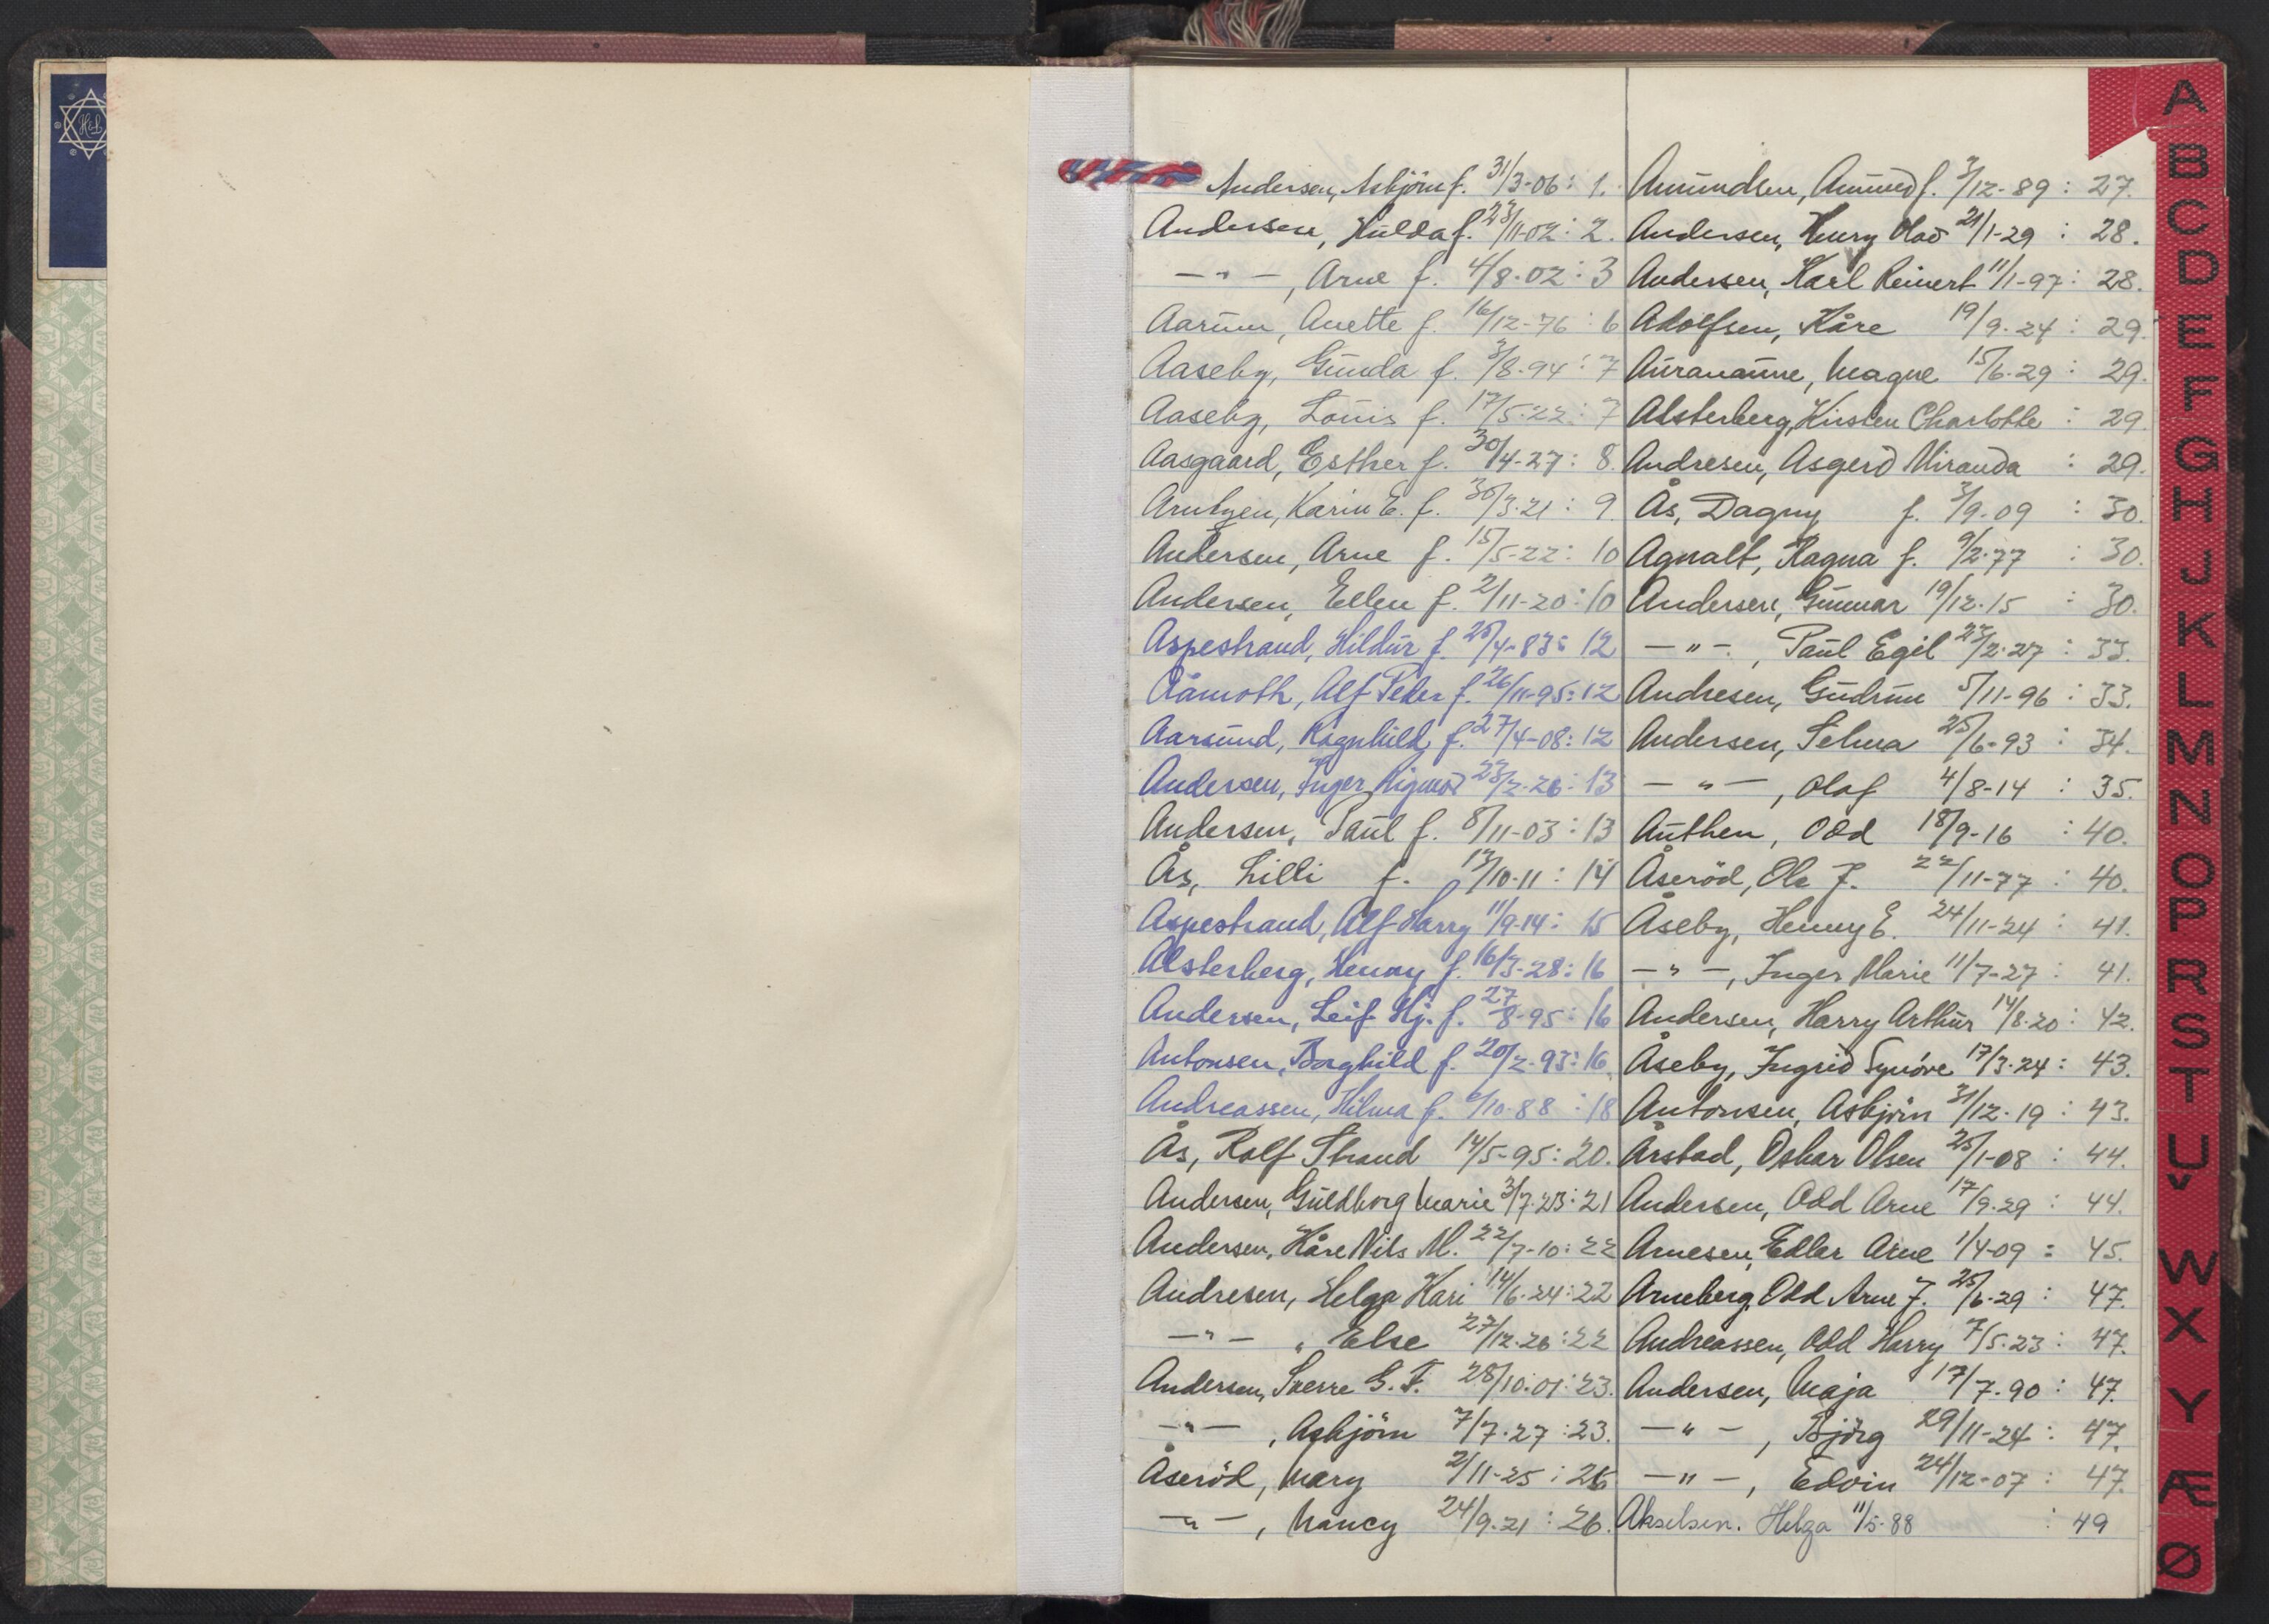 H&L
Andersen, Asbjörn f. 31/3-06: 1.
Andersen, Hulda f. 23/11-02: 2.
—"—, Arne f. 4/8-02: 3
Aarum, Anette f. 16/12-76: 6
Aaseby, Gunda f. 3/8-94: 7
Aaseby, Louis f. 17/5-22: 7
Aasgaard, Esther f. 30/4-27: 8.
Arntzen, Karin E. f. 30/3-21: 9.
Andersen, Arne f. 15/5-22: 10
Andersen, Ellen f. 2/11-20: 10
Aspestrand, Hildur f. 25/4-83: 12
Aamoth, Alf Peder f. 26/11-95: 12
Aarsund, Ragnhild f. 27/4-08: 12
Andersen, Inger Signor 23/2-26: 13
Andersen, Paul f. 8/11-03: 13
Ås, Lilli f. 13/10-11: 14
Aspestrand, Alf Harry 11/9-14: 15
Alsterberg, Henny f. 16/3-28: 16
Andersen, Leif Hj. f. 27/8-95: 16
Antonsen, Borghild f. 20/2-93: 16
Andreassen, Hilma f. 6/10-88: 18
Ås, Rolf Strand 14/5-95: 20.
Andersen, Guldborg Marie 3/7-23: 21
Andersen, Kåre Nils M. 22/7-10: 22
Andresen, Helga Kari 14/6-24: 22
—"— " Else 27/12-26: 22
Andersen, Sverre G. F. 28/10-01: 23.
—"—, Asbjörn 7/7-27: 23.
Åseröd, Mary 2/11-25: 26
—"—, Nancy 24/9-21: 26.
Amundsen, Amund f. 3/12-89: 27.
Andersen, Henry Olav 21/1-29: 28.
Andersen, Karl Reinert 11/1-97: 28.
Adolfsen, Kåre 19/9-24: 29.
Auranaune, Magne 15/6-29: 29.
Alsterberg, Kirsten Charlotte: 29.
Andresen, Asgerd Miranda: 29.
Ås, Dagny f. 3/9-09: 30.
Agnalt, Ragna f. 9/2-77: 30.
Andersen, Gunnar 19/12-15: 30.
—"—, Paul Egil 23/2-27: 33.
Andresen, Gudrun 5/11-96: 33.
Andersen, Selma 25/6-93: 34.
—"—, Olaf 4/8-14: 35.
Authen, Odd 18/9-16: 40.
Åseröd, Ole J. 22/11-77: 40.
Åseby, Henny E. 24/11-24: 41.
—"—, Inger Marie 11/7-27: 41.
Andersen, Harry Arthur 14/8-20: 42.
Åseby, Ingrid Synöve 17/3-24: 43.
Antonsen, Asbjörn 31/12-19: 43.
Årstad, Oskar Olsen 25/1-08: 44.
Andersen, Odd Arne 17/9-29: 44.
Arnesen, Edler Arne 1/4-09: 45.
Arneberg, Odd Arne J. 25/6-29: 47.
Andreassen, Odd Harry 7/5-23: 47.
Andersen, Maja 17/7-90: 47.
—"—, Björg 29/11-24: 47.
—"—, Edvin 24/12-07: 47.
Akselsen. Helga 11/5-88: 49
A
B
C
D
E
F
G
H
J
K
L
M
N
O
P
R
S
T
U
V
W
X
Y
Æ
Ø